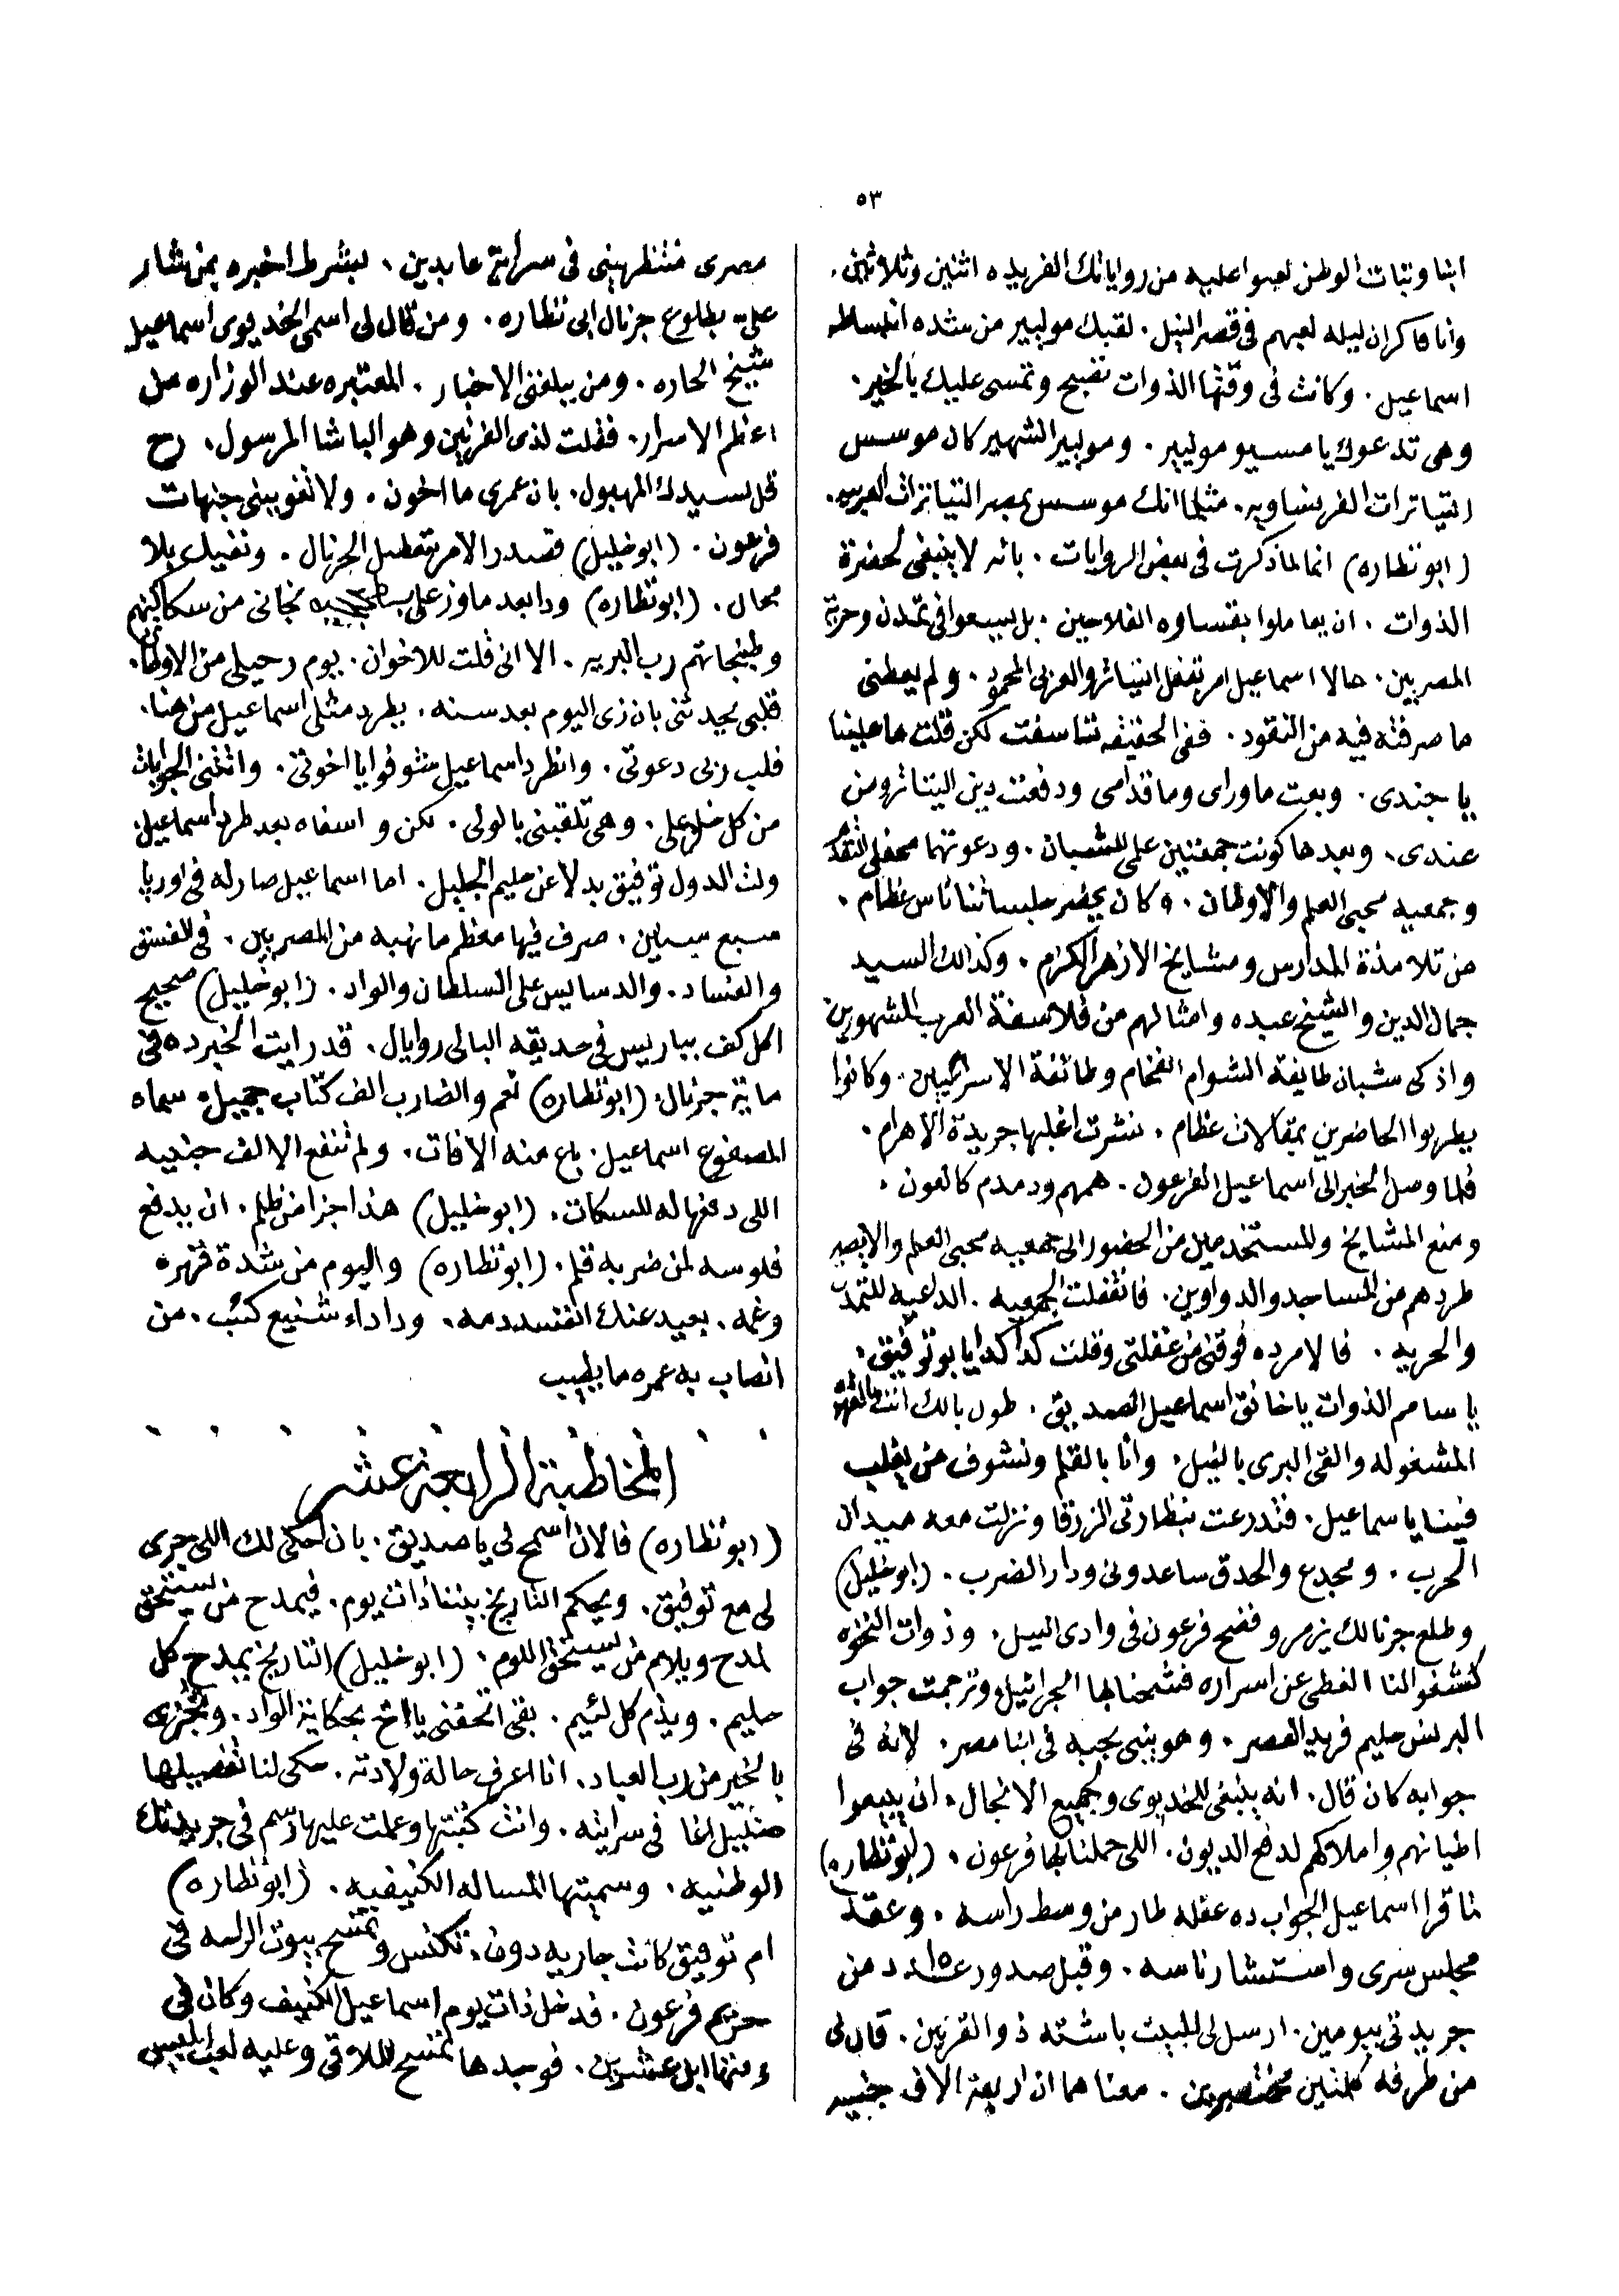 ٥٣
ابنا وبنات الوطن لعبوا عليه من رواياتك الفريده اثنين وثلاثين.
وانا فاكر ان ليله لعبهم فى قصر النيل. لقبك موليير من شده انبساطه
اسماعيل. وكانت فى وقتها الذوات تصبح وتمسى عليك بالخير.
وهى تدعوك يا مسيو موليير. وموليير الشهير كان موسس
التياترات الفرنساويه. مثلما انك موسس بمصر التياترات العربيه.
(ابو نظاره) انما لما ذكرت فى بعض الروايات. بانه لا ينبغى لحضرة
الذوات. ان يعاملوا بقساوه الفلاحين. بل يسعوا فى تمدن وحرية
المصريين. حالا اسماعيل امر بقفل التياترو العربى المحمود. ولم يعطنى
ما صرفته فيه من النقود. ففى الحقيقه تاسفت لكن قلت ما علينا
يا جندى. وبعت ماوراى وما قدامى ودفعت دين التياترو من
عندى. وبعدها كونت جمعتين على للشبان. ودعوتهما محفل التقدم
وجمعيه محبى العلم والاوطان. وكان يحضر جلساتنا ناس عظام.
من تلامذة المدارس ومشايخ الازهر الكرام. وكذالك السيد
جمال الدين والشيخ عبده وامثالهم من فلاسفة العرب المشهورين
واذكى شبان طايفة الشوام الفخام وطائفة الاسرائيليين. وكانوا
يطربوا الحاضرين بمقالات عظام. نشرت اغلبها جريدة الاهرام.
فلما وصل الخبر الى اسماعيل الفرعون. همهم ودمدم كالعون.
ومنع المشايخ والمستخدمين من الحضور الى جمعيه محبى العلم والا يصير
طردهم من المساجد والدواوين. فانقفلت الجمعيه. الداعيه للتمدن
والحريه. فالامر ده فوقنى من غفلتى وقلت كدا كدا يا بو توفيق.
يا سامم الذوات يا خانق اسماعيل الصديق. طول بالك انت بالقهوه
المشغوله والقى البرى بالنيل. وانا بالقلم ونشوف من يغلب
فينا يا سماعيل. فتدرعت بنظارتى الزرقا ونزلت معه ميدان
الحرب. ومجدع والحدق ساعدونى ودار الضرب. (ابو خليل)
وطلع جرنالك يزمر وفضح فرعون فى وادى النيل. وذوات النخوه
كشفوا لنا الغطى عن اسراره فشحنا بها الجرانيل وترجمت جواب
البرنس حليم فريد العصر. وهو ينبى بحبه فى ابنا مصر. لانه فى
جوابه كان قال. انه ينبغى للخديوى وجميع الانجال. ان يبيعوا
اطيانهم واملاكهم لدفع الديون. اللى حملنا بها فرعون. (ابو نظاره)
لما قرا اسماعيل الجواب ده عقله طار من وسط راسه. وعقد
مجلس سرى واستشار ناسه. وقبل صدور عدد ١٥ من
جريدتى بيومين. ارسل لى للبيت باشته ذو القرنين. قال لى
من طرفه كلمتين مختصرين. معناهما ان اربعة الاف جنيه
مصرى منتظرينى فى سراية عابدين. بشرط اخبره بمن شار
على بطلوع جرنال ابى نظاره. ومن قال لى اسمى الخديوى اسماعيل
شيخ الحاره. ومن يبلغنى الاخبار. المعتبره عند الوزاره من
اعظم الاسرار. فقلت لذى القرنين وهو الباشا المرسول. رح
قل لسيدك المهبول. بان عمرى ما اخون. ولا تغوينى جنيهات
فرعون. (ابو خليل) فصدر الامر بتعطيل الجرنال. ونفيك بلا
محال. (ابو نظاره) ودا بعد ما وزع على نجانى من سكاكينهم
وطبنجاتهم رب البريه. الا انى قلت للاخوان. يوم رحيلى من الاوطان.
قلبى يحدثنى بان زى اليوم بعد سنه. يطرد مثلى اسماعيل من هنا.
فلب ربى دعوتى. وانطرد اسماعيل شوفوا يا اخوتى. واتتنى الجوابات
من كل خل على. وهى تلقبنى بالولى. لكن وا اسفاه بعد طرد اسماعيل.
ولت الدول توفيق بدلا عن حليم الجليل. اما اسماعيل صار له فى اوربا
سبع سنين. صرف فيها معظم ما نهبه من المصريين. فى الفسق
والفساد. والدسايس على السلطان والواد. (ابو خليل) صحيح
اكل كف بباريس فى حديقه البالى روايال. قد رايت الخبر ده فى
ماية جرنال. (ابو نظاره) نعم والضارب الف كتاب جميل. سماه
المصفوع اسماعيل. باع منه الافات. ولم تنفع الالف جنيه
اللى دفعها له للسكات. (ابو خليل) هذا جزا من ظلم. ان يدفع
فلوسه لمن ضربه قلم. (ابو نظاره) واليوم من شدة قهره
وغمه. بعيد عنك انفسد دمه. ودا داء شنيع كئب. من
انصاب به عمره ما يطيب
المخاطبة الرابعة عشر
(ابو نظاره) فالان اسمح لى يا صديق. بان احكى لك اللى جرى
لى مع توفيق. ويحكم التاريخ بيننا ذات يوم. فيمدح من يستحق
لمدح ويلام من يستحق اللوم. (ابو خليل) التاريخ يمدح كل
حليم. ويذم كل لئيم. بقى اتحفنى يا اخ بحكاية الواد. وتجزى
بالخير من رب العباد. انا اعرف حالة ولادته. حكى لنا تفصيلها
خليل اغا فى سرايته. وانت كتبتها وعملت عليها رسم فى جريدتك
الوطنيه. وسميتها المساله الكنيفيه. (ابو نظاره)
ام توفيق كانت جاريه دون. تكنس وتمسح بيوت الراحه فى
حريم فرعون. فدخل ذات يوم اسماعيل الكنيف وكان فى
وقتها ابن عشرين. فوجدها تمسح الملاقى وعليه لعب ابليس